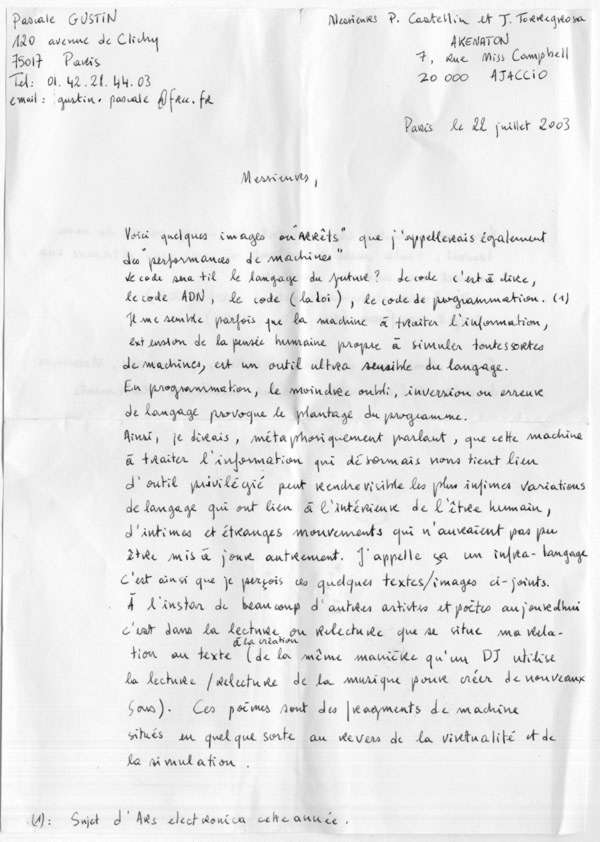 Pascale GUSTIN
120 avenue de Clichy
75017 Paris
Tel: 01.42.21.44.03
email: gustin.pascale @free.fr
Messieurs P. Castellin et J. Torregrosa
AKENATON
7, rue Miss Campbell
20 000 AJACCIO
Paris le 22 juillet 2003
Messieurs,
Voici quelques images ou "ARRÊTS" que j'appellerais également
des "performances de machines"
Le code sera til le langage du future? Le code c'est à dire,
le code ADN, le code (la loi), le code de programmation. (1)
Il me semble parfois que la machine à traiter l'information,
extension de la pensée humaine propre à simuler toutes sortes
de machines, est un outil ultra sensible du langage.
En programmation, le moindre oubli, inversion ou erreur
de langage provoque le plantage du programme.
Ainsi, je dirais, métaphoriquement parlant, que cette machine
à traiter l'information qui désormais nous tient lieu
d'outil privilégié peut rendre visible les plus infimes variations
de langage qui ont lieu à l'intérieur de l'être humain,
d'intimes et étranges mouvements qui n'auraient pas pu
être mis à jour autrement. J'appelle ça un infra-langage
C'est ainsi que je perçois ces quelques textes/images ci-joints.
À l'instar de beaucoup d'autres artistes et poètes aujourd'hui
c'est dans la lecture ou relecture que se situe ma rela-
tion au texte à la création (de la même manière qu'un DJ utilise
la lecture/relecture de la musique pour créer de nouveaux
sons). Ces poèmes sont des fragments de machine
situés en quelque sorte au revers de la virtualité et de
la simulation.
(1): Sujet d'Ars electronica cette année.